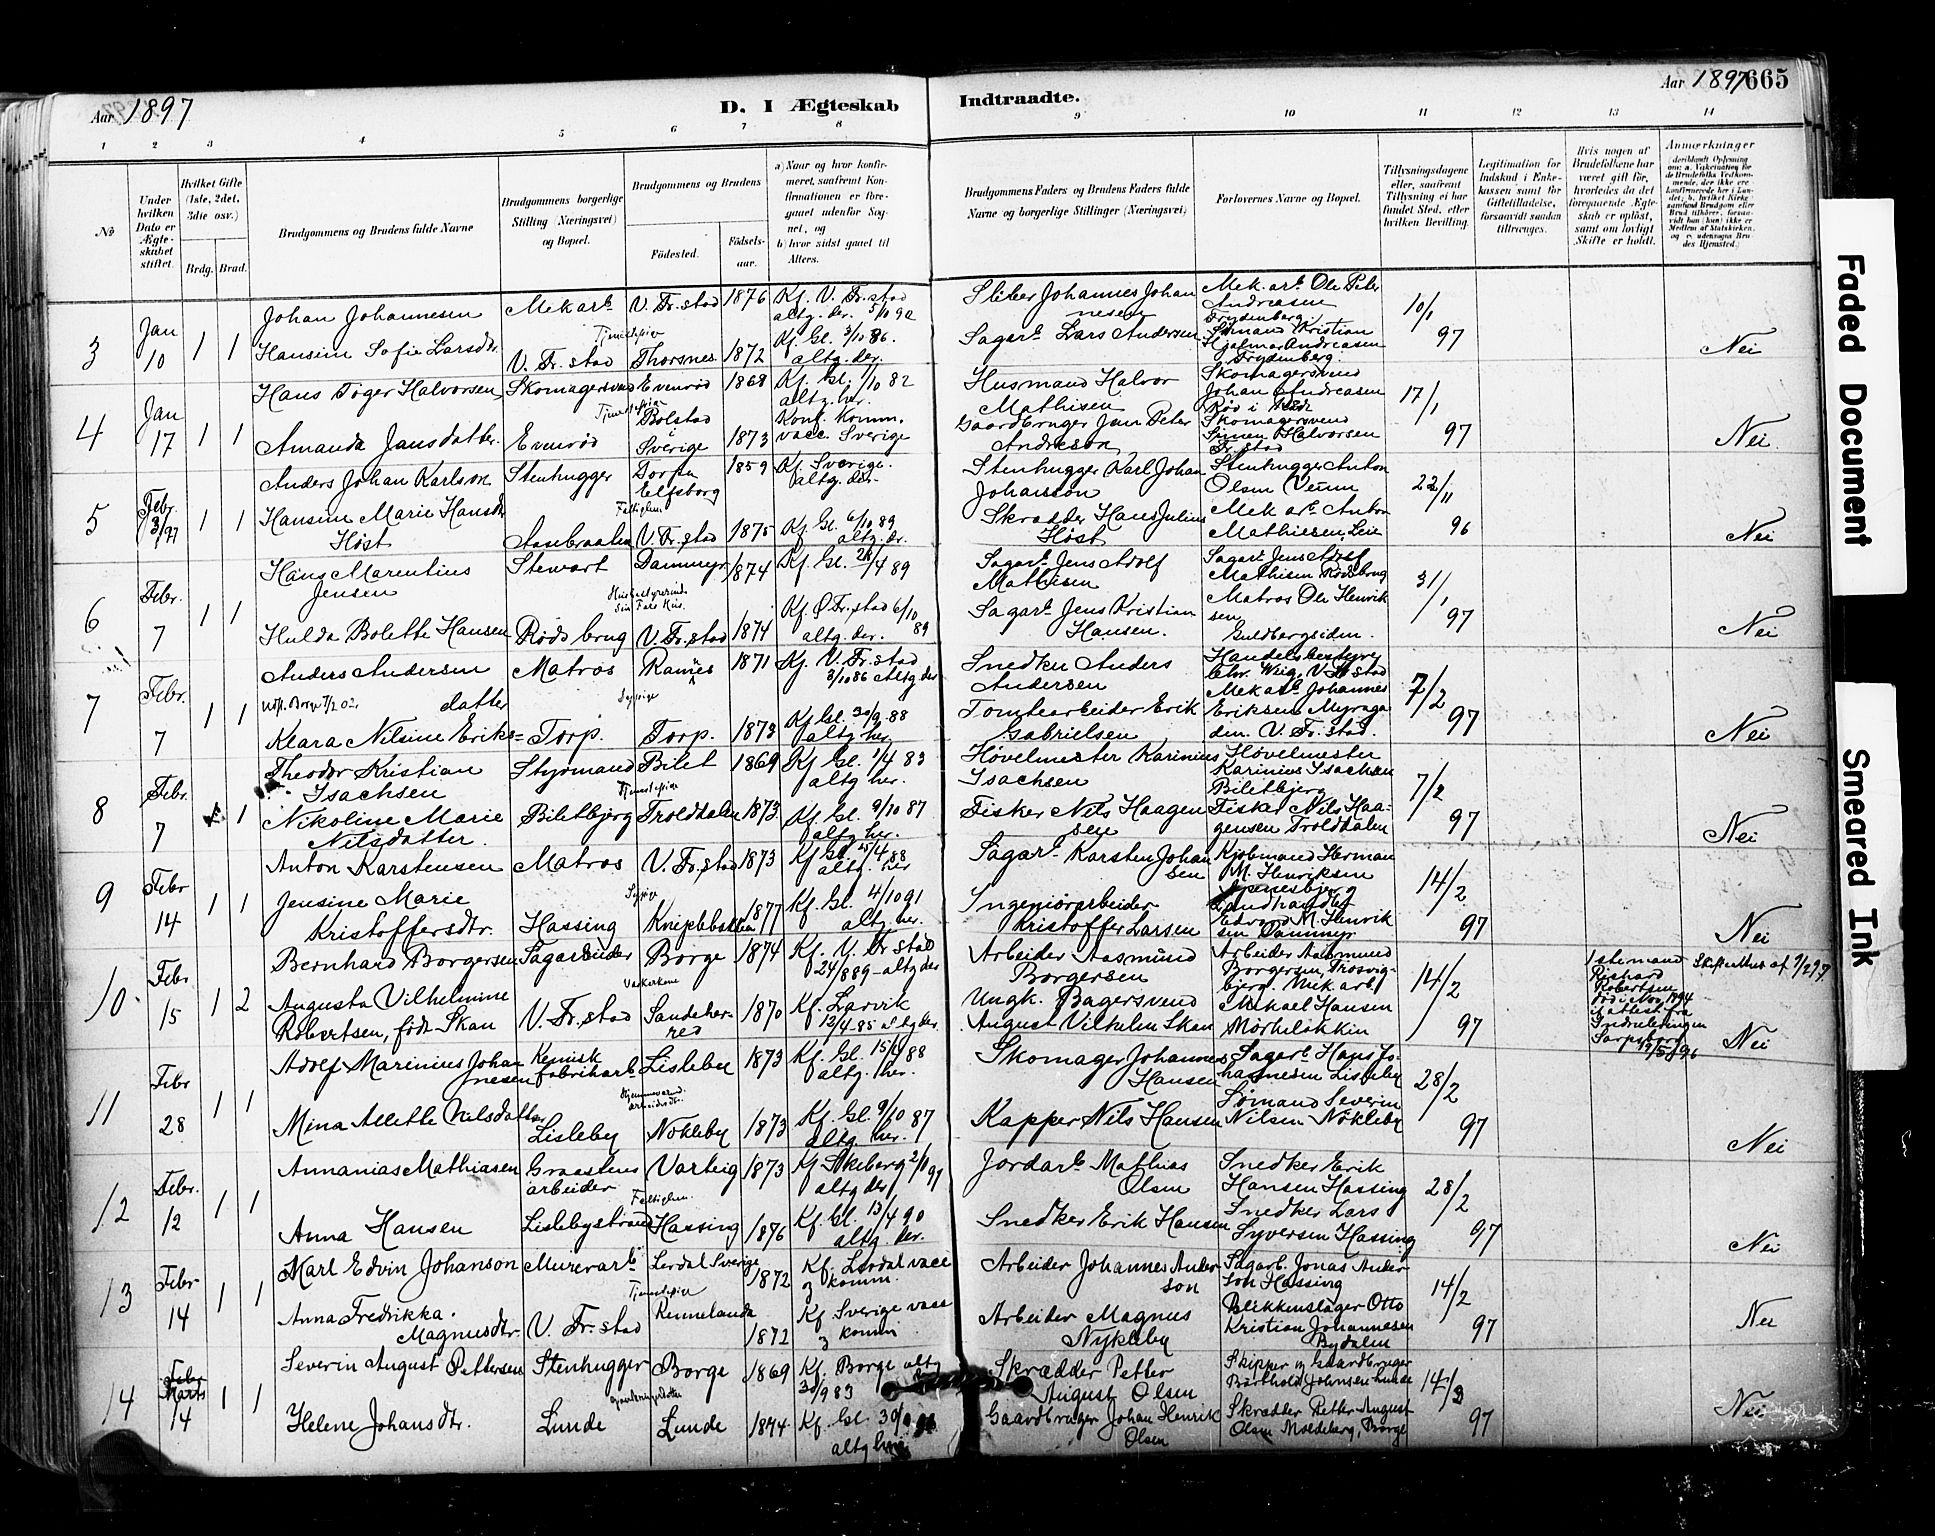 Aar 1897
D. I Ægteskab
Indtraadte.
Aar 1897 665
1 2 3 4 5 6 7 8 9 10 11 12 13 14
No
Under hvilken Dato er Ægteskabet stiftet.
Hvilket Gifte (1ste, 2det, 3die osv.)
Brdg. Brud.
Brudgommens og Brudens fulde Navne
Brudgommens borgerlige Stilling (Næringsvei) og Bopæl.
Brudgommens og Brudens
Fødested. Fødselsaar.
a) Naar og hvor konfirmeret, saafremt Konfirmationen er foregaaet udenfor Sognet, og
b) hvor sidst gaaet til Alters.
Brudgommens Faders og Brudens Faders fulde Navne og borgerlige Stillinger (Næringsvei)
Forlovernes Navne og Bopæl.
Tillysningsdagene eller, saafremt Tillysning ei har fundet Sted, efter hvilken Bevilling.
Legitimation for Indskud i Enkekassen samt for Giftetilladelse, forsaavidt saadan tiltrænges.
Hvis nogen af Brudefolkene har været gift før, hvorledes da det foregaaende Ægteskab er opløst, samt om lovligt Skifte er holdt.
Anmærkninger
3 Jan 10 1 1
Johan Johannesen Mekarb V. Fr.stad 1876 Kf. V. Fr.stad altg. der. 5/10 92
Sliber Johannes Johannesen
Mek. arb. Ole Peter Andreasen Frydenberg.
10/1 97
Hansine Sofie Larsdtr. V. Fr. stad Tjenestepige Thorsnes 1872 Kf. Gl. 3/10 86. altg. der.
Sagarb. Lars Andersen
Sømand Kristian Hjalmar Andreasen Frydenberg.
Nei
4 Jan 17 1 1
Hans Toger Halvorsen Skomagersvend Evenrød 1868 Kf. Gl. 1/10 82 altg. her.
Husmand Halvor Mathisen
Skomagersvend Johan Andreasen Rød i
17/1 97
Amanda Jansdatter. Evenrød Tjenestepige Bolstad i Sverige 1873 Konf. Komm. vacc. Sverige
Gaardbruger Jan Peter Andreson
Skomagersvend Simen Halvorsen Fr.stad
Nei
5 Febr. 3/97 1 1
Anders Johan Karlson Stenhugger Torpa Elfsborg 1859 Kf. Sverige. altg. der.
Stenhugger Karl Johan Johansson
Stenhugger Anton Olsen Veum
22/11 96
Hansine Marie Hansdtr Høst V. Fr. stad 1875 Kf. Gl. 6/10 89 altg. der.
Skrædder Hans Julius Høst
Mek arb. Anton Mathiesen, Leie
Nei
6 Febr. 7 1 1
Hans Marentius Jensen Stewart Dammyr 1874 Kf. Gl. 28/4 89
Sagarb. Jens Adolf Mathisen
Sagarb Jens Adolf Mathisen Rødsbrug
31/1 97
Hulda Bolette Hansen Røds brug V. Fr. stad 1874 Kf. Ø Fr. stad 6/10 89 altg. der.
Sagarb. Jens Kristian Hansen.
Matros Ole Henriksen Guldbergsiden.
Nei
7 Febr. 7 1 1
Anders Andersen Matros Ramnes 1871 Kf. V. Fr. stad 3/10 86 altg. der
Snedker Anders Andersen
Handelsbestyrer Chr. Wiig, V. Fr. stad
7/2 97
Klara Nilsine Eriks= datter Torp. Torp. 1873 Kf. Gl. 30/9 88 altg. her.
Tomtearbeider Erik Gabrielsen
Mek arb. Johannes Eriksen Myragaden. V. Fr. stad.
Nei
8 Febr. 7 1 1
Theodor Kristian Isachsen Styrmand Bilet 1869 Kf Gl. 1/4 83 altg her.
Høvelmester Karinius Isachsen
Høvelmester Karinius Isachsen Biletbjerg
7/2 97
Nikoline Marie Nilsdatter. Biletbjerg Tjenestepige Troldalen 1873 Kf. Gl. 9/10 87 altg her.
Fisker Nils Haagensen
Fisker Nils Haagensen Troldalen
Nei
9 Febr 14 1 1
Anton Karstensen Matros V. Fr. stad 1873 Kf Gl. 15/4 88 altg. her
Sagarb. Karsten Johansen
Kjøbmand Herman M. Henriksen
14/2 97
Jensine Marie Kristoffersdtr. Hassing 1877 Kf. Gl. 4/10 91 altg. her.
Ingeniørarbeider Kristoffer Larsen
Landhandler Edvard M. Henriksen Dammyr
Nei
10. Febr 15 1 2
Bernhard Borgersen Sagarbeider Borge 1874 Kf. V. Fr stad 24/8 89 – altg der
Arbeider Aasmund Borgersen
Arbeider Aasmund Borgersen, Trosvigbjerg. Mek. arb.
14/2 97
1ste mand Richard Robertsen død i Nov 1894 if. attest fra Indrulleringen Sarpsborg 19/5 96
Skifte Attest af 9/2 97
Augusta Vilhelmine Robertsen, født Skau V. Fr. stad Sandeherred 1870 Kf. Larvik 12/4 85 altg der.
Ungk. Bagersvend August Vilhelm Skau
Mikael Hansen Mørkeløkken
Nei
11 Febr 28 1 1
Adolf Marinius Johannesen Kemisk fabrikarb. Lisleby 1873 Kf. Gl. 15/4 88 altg. her.
Skomager Johannes Hansen
Sagarb. Hans Johannesen Lisleby
28/2 97
Mina Alette Nilsdatter Lisleby Nøkleby 1873 Kf. Gl. 9/10 87 altg. her.
Kapper Nils Hansen
Sømand Severin Nilsen Nøkleby
Nei
12 Febr. 12 1 1
Annanias Mathiasen Graastensarbeider Varteig 1873 Kf Skeberg 2/10 91 altg der
Jordarb. Mathias Olsen
Snedker Erik Hansen Hassing
28/2 97
Anna Hansen Lislebystrand Hassing 1876 Kf. Gl. 13/4 90 altg. der.
Snedker Erik Hansen
Snedker Lars Syversen Hassing
Nei
13 Febr 14 1 1
Karl Edvin Johanson Murerarb. Lerdal Sverige 1872 Kf. Lerdal vacc og komm.
Arbeider Johannes Anderson
Sagarb. Jonas Anderson Hassing
14/2 97
Anna Fredrikka. Magnusdtr. V. Fr. stad Tjenestepige 1872 Kf Sverige vacc og komm
Arbeider Magnus Nykleby
Blikkenslager Otto Kristian Johannesen Bydalen
Nei
14 Marts 14 1 1
Severin August Pettersen Stenhugger Borge 1869 Kf. Borge altg 30/9 83
Skrædder Petter August Olsen
Skipper og Gaardbruger Barthold Johnsen Lunde
14/3 97
Helene Johansdtr. Lunde Lunde 1874 Kf. Gl. altg her
Gaardbruger Johan Henrik Olsen
Skrædder Petter August Olsen Moldeberg, Borge
Nei
Faded Document
Smeared Ink